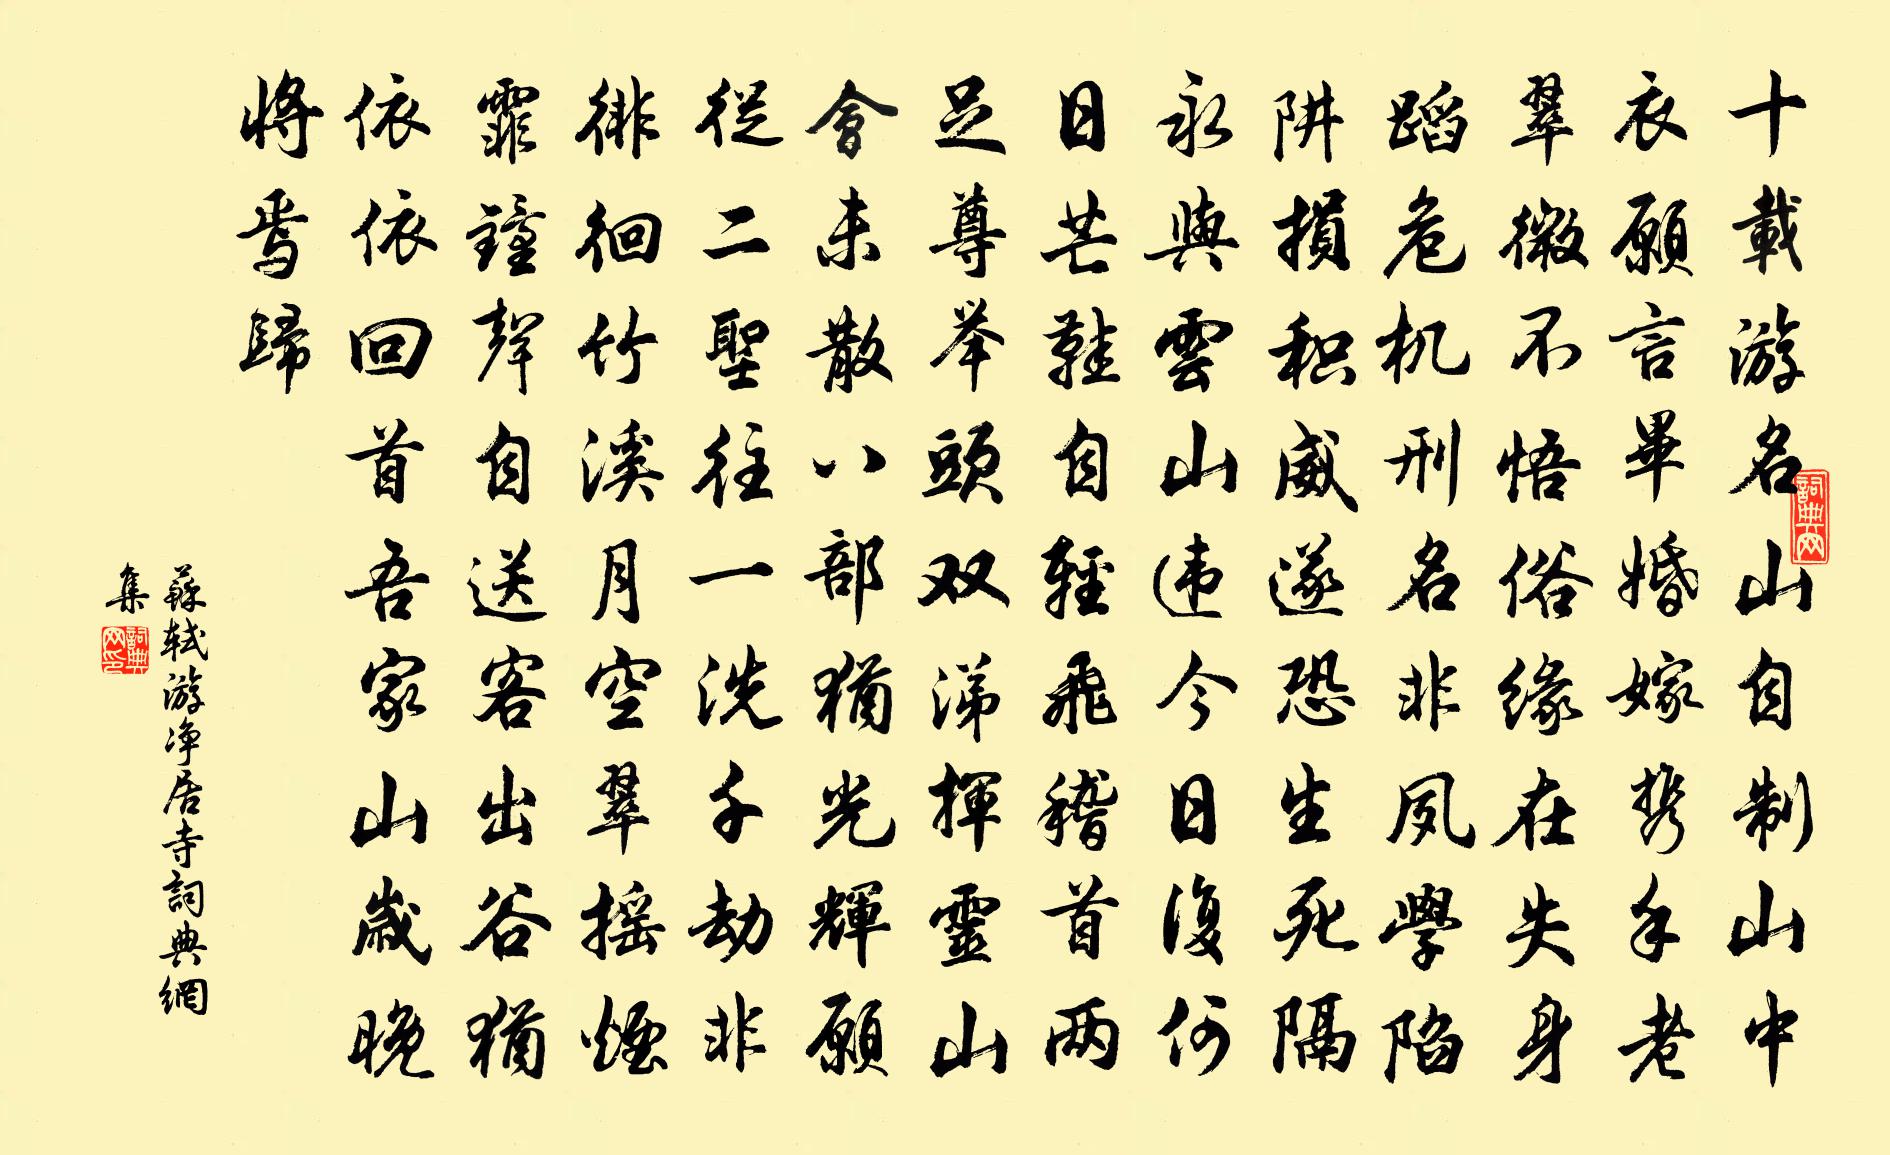 十載游名山自制山中
衣願言畢婚嫁携手老
翠微不悟俗缘在失身
蹈危机刑名非夙學陷
阱損积威遂恐生死隔
永與雲山违今日復何
日芒鞋自輕飛稽首两
足尊举頭双涕揮靈山
會未散八部猶光輝願
從二聖往一洗千劫非
徘徊竹溪月空翠摇煙
霏鐘聲自送客出谷猶
依依回首吾家山歲晚
将焉歸
蘇軾游净居寺詞典網
集
詞典网
詞典网印